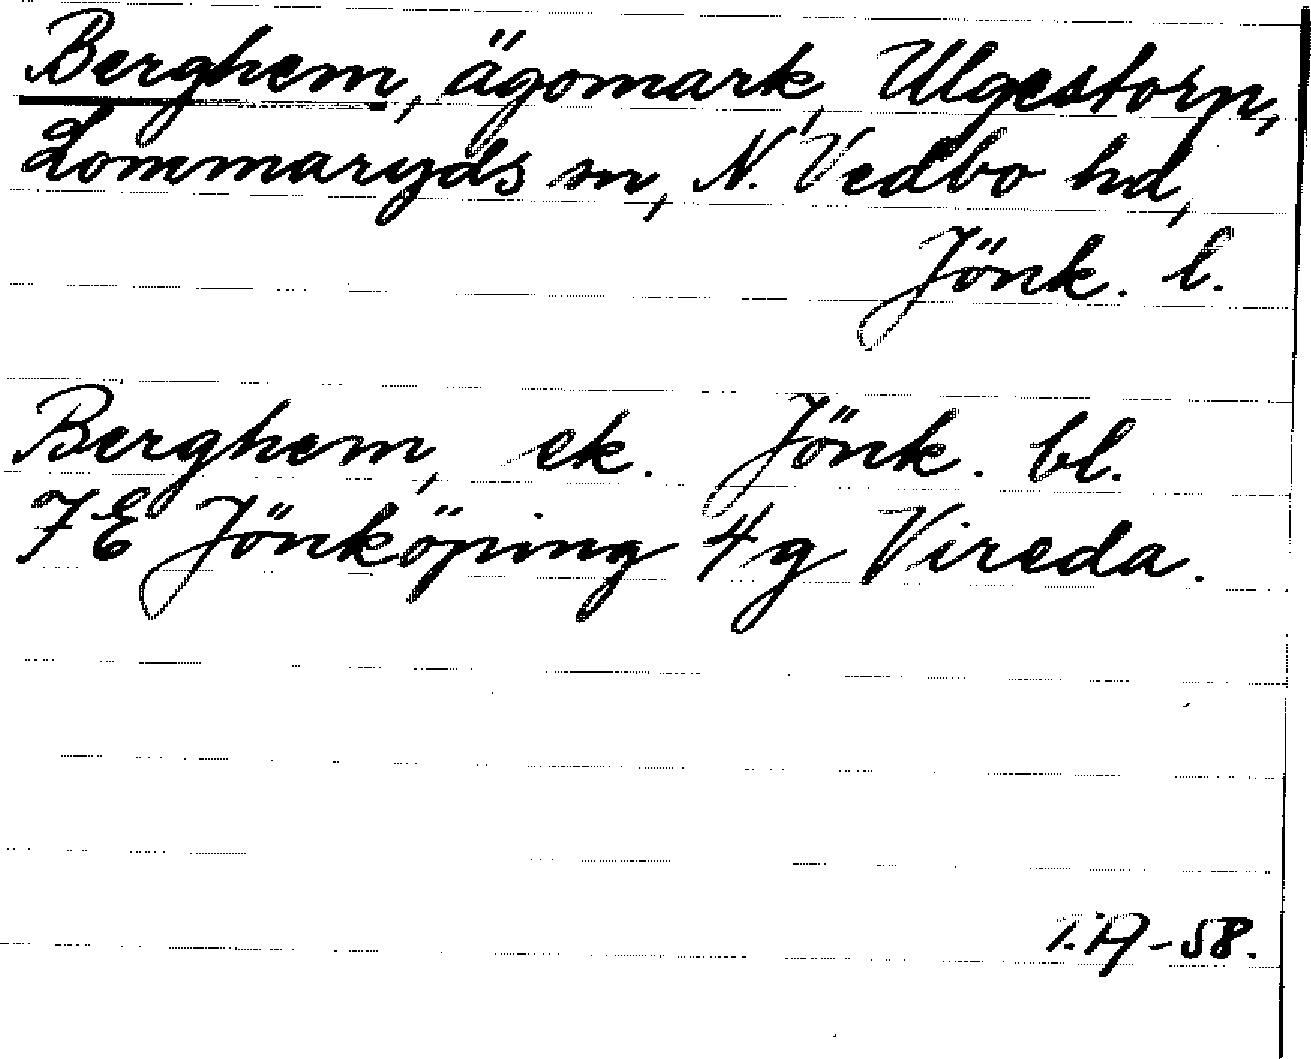 Berghem, ägomark, Ulgestorp,
Lommaryds sn, N. Vedbo hd,
Jönk. l.
Berghem, ek. Jönk. bl.
7E Jönköping 4g Vireda.
-58.